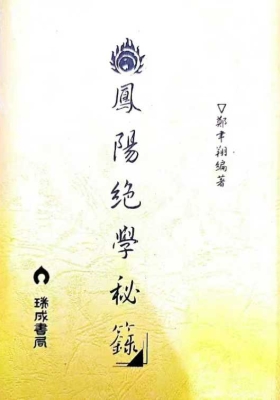 鳳陽絕學秘籙
▽鄭聿翔編著
瑞成書局